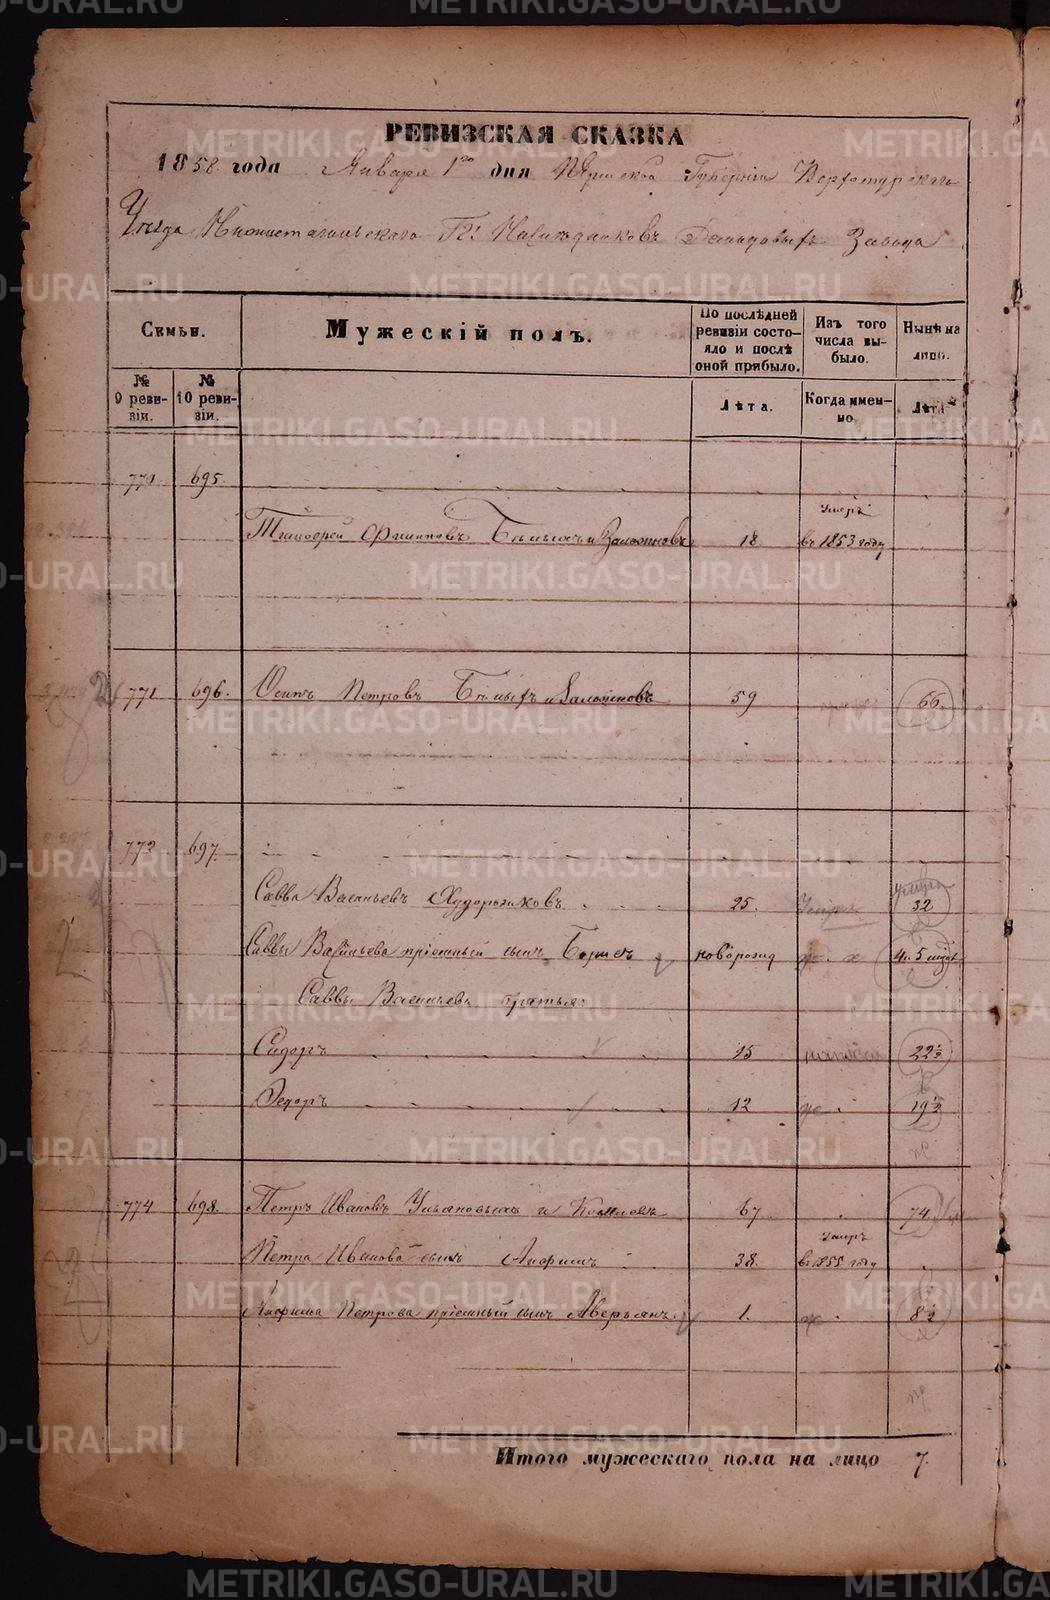 METRIKI.GASO-URAL.RU
РЕВИЗСКАЯ СКАЗКА
1858 года Января 1го дня Пермской Губернiи Верхотурскаго
Уезда Нижнетагильскаго Гг. Наследниковъ Демидовыхъ Завода
Семьи.
Мужескій полъ.
По послѣдней ревизіи состояло и послѣ оной прибыло.
Изъ того числа выбыло.
Нынѣ на лицо.
№ 9 ревизіи.
№ 10 ревизіи.
Лѣта.
Когда именно.
Лѣта
770 695.
Умеръ
Тимофей Филиповъ Бѣлыхъ и 18 въ 1853 году
771 696. Осипъ Петровъ Бѣлыхъ и 59 66
772 697.
Савва Васильевъ 25. умеръ 32
Саввы Васильева пріемный сынъ новорожд 4. 5
Саввы Васильева братья
Сидоръ 15 22½
Федоръ 12 19½
774 698. Петръ Ивановъ Ульяновыхъ и 67 74
умеръ
Петра Иванова сынъ Анфимъ 38. въ 1855 году
Анфима Петрова пріемный сынъ Аверьянъ 1. 8½
Итого мужескаго пола на лицо 7.